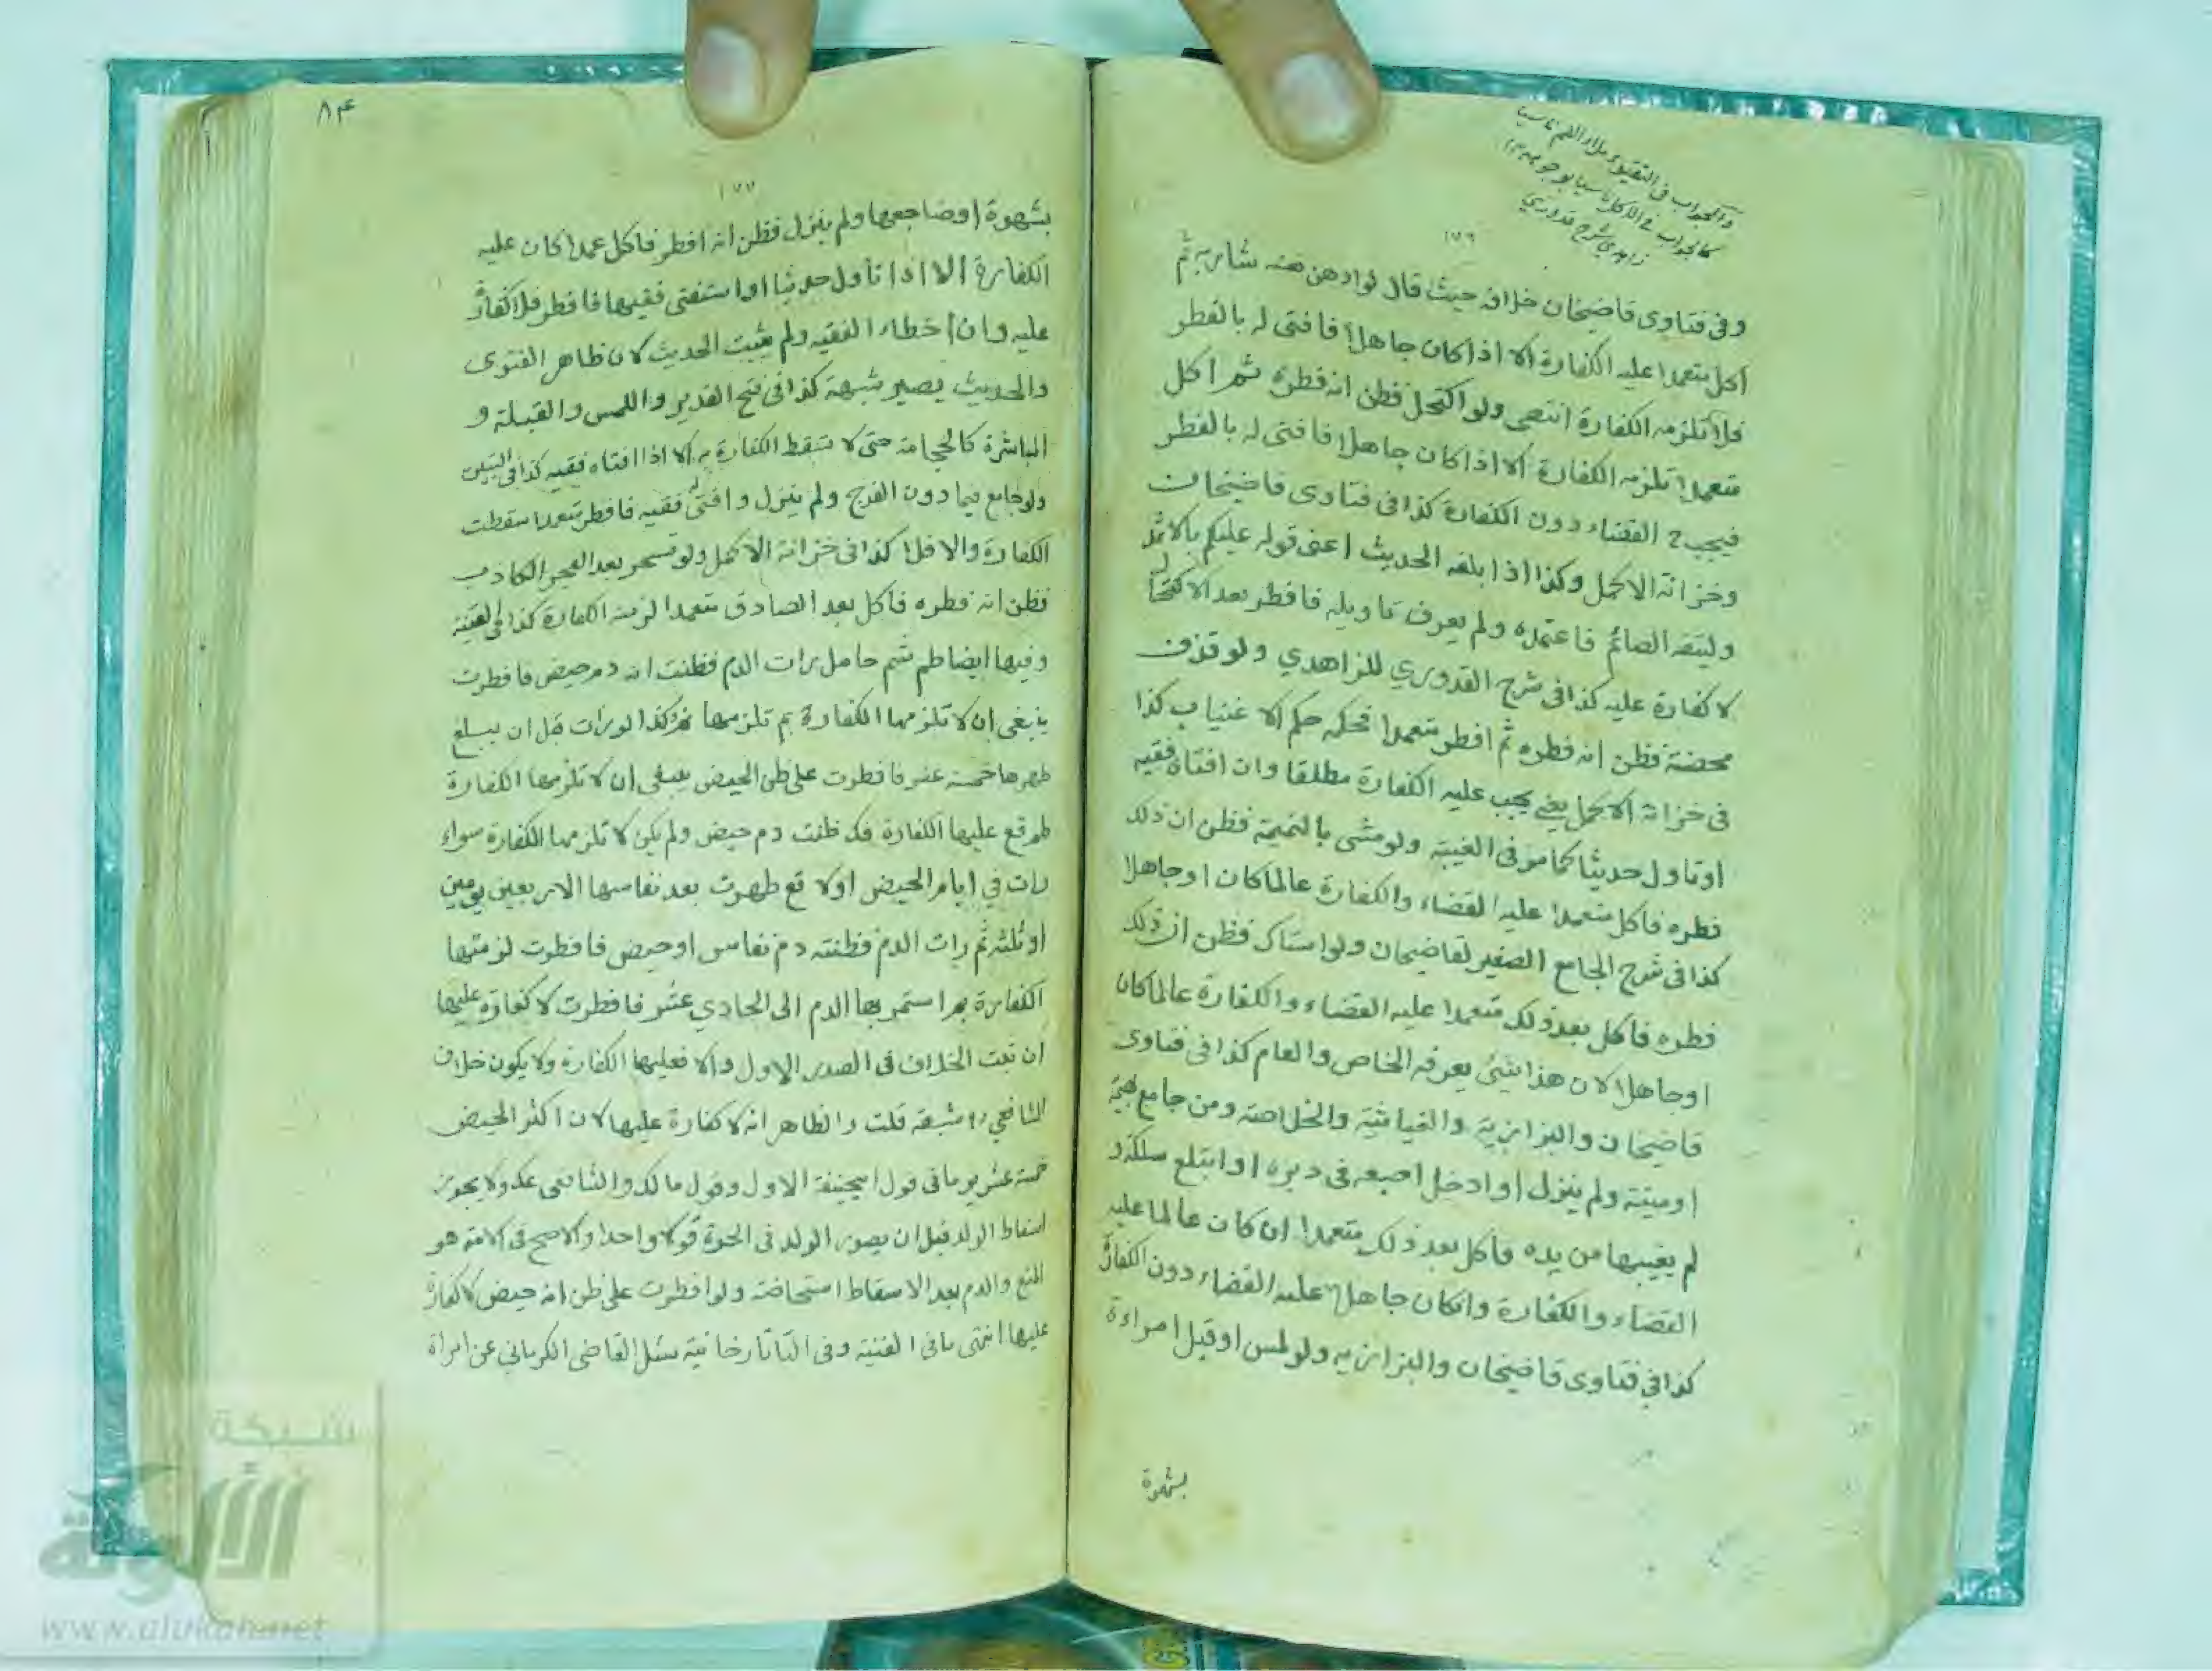 والجواب في التقيؤ ملأ الفم ناسيا
كالجواب في الأكل ناسيا
زاهدي شرح قدوري
١٧٦
وفى فتاوى قاضيخان خلافه حيث قال لو ادهن شاربه ثم
اكل متعمدا عليه الكفارة الا اذا كان جاهلا فافتى له بالفطر
فلا تلزمه الكفارة انتهى ولو اكتحل فظن انه فطره ثم اكل
متعمدا تلزمه الكفارة الا اذا كان جاهلا فافتى له بالفطر
فيجب ح القضاء دون الكفارة كذا فى فتاوى قاضيخان
وخزانة الاكمل وكذا اذا بلغه الحديث اعنى قوله عليكم بالاثمد
وليتقه الصائم فاعتمده ولم يعرف تاويله فافطر بعد الاكتحال
لا كفارة عليه كذا فى شرح القدوري للزاهدي ولو قذف
محصنة فظن انه فطره ثم افطر متعمدا فحكمه حكم الاغتياب كذا
فى خزانة الاكمل يعني يجب عليه الكفارة مطلقا وان افتاه فقيه
او تاول حديثا كما مر فى الغيبة ولو مشى بالنميمة فظن ان ذلك
فطره فاكل متعمدا عليه القضاء والكفارة عالما كان او جاهلا
كذا فى شرح الجامع الصغير لقاضيخان ولو استاك فظن ان ذلك
فطره فاكل بعد ذلك متعمدا عليه القضاء والكفارة عالما كان
او جاهلا لان هذا شئ يعرفه الخاص والعام كذا فى فتاوى
قاضيخان والبزازية والغياثية والخلاصة ومن جامع بهيمة
او ميتة ولم ينزل او ادخل اصبعه فى دبره او ابتلع سلكة و
لم يغيبها من يده فاكل بعد ذلك متعمدا ان كان عالما عليه
القضاء والكفارة وانكان جاهلا عليه القضاء دون الكفارة
كذا في فتاوى قاضيخان والبزازيه ولو لمس او قبل امراءة
بشهوة
٨٤
١٧٧
بشهوة اوضاجعها ولم ينزل فظن انه افطر فاكل عمدا كان عليه
الكفارة الا اذا تاول حديثا او استفتى فقيها فافطر فلا كفارة
عليه وان اخطاء الفقيه ولم يثبت الحديث لان ظاهر الفتوى
والحديث يصير شبهة كذا فى فتح القدير واللمس والقبلة و
المباشرة كالحجامة حتى لا تسقط الكفارة به الا اذا افتاه فقيه كذا فى التبيين
ولو جامع فيما دون الفرج ولم ينزل وافتى له فقيه فافطر متعمدا سقطت
الكفارة والا فلا كذا فى خزانة الاكمل ولو تسحر بعد الفجر الكاذب
فظن انه فطره فاكل بعد الصادق متعمدا لزمته الكفارة كذا فى القنية
وفيها ايضا طم شم حامل رات الدم فظنت انه دم حيض فافطرت
ينبغى ان لا تلزمها الكفارة بم تلزمها وكذا لو رات قبل ان يبلغ
طهرها خمسة عشر فافطرت على ظن الحيض ينبغى ان لا تلزمها الكفارة
عليها الكفارة ظنت دم حيض ولم يكن لا تلزمها الكفارة سواء
رات في ايام الحيض اولا قع طهرت بعد نفاسها الاربعين يومين
او ثلثه ثم رات الدم فظنته دم نفاس او حيض فافطرت لزمتها
الكفارة استمر بها الدم الى الحادي عشر فافطرت لا كفارة عليها
ان ثبت الخلاف فى الصدر الاول والا فعليها الكفارة ولا يكون خلاف
الشافعي شبهة قلت والظاهر انه لا كفارة عليها لان اكثر الحيض
خمسة عشر يوما فى قول ابيحنيفة الاول وقول مالك والشافعى ولا يجوز
اسقاط الولد قبل ان يصور الولد فى الحرة قولا واحدا والاصح فى الامة هو
المنع والدم بعد الاسقاط استحاضة ولو افطرت على ظن انه حيض لا كفارة
عليها انتهى ما فى القنية وفى التاتارخانية سئل القاضى الكرماني عن امراة
شبكة
الألوكة
www.alukah.net